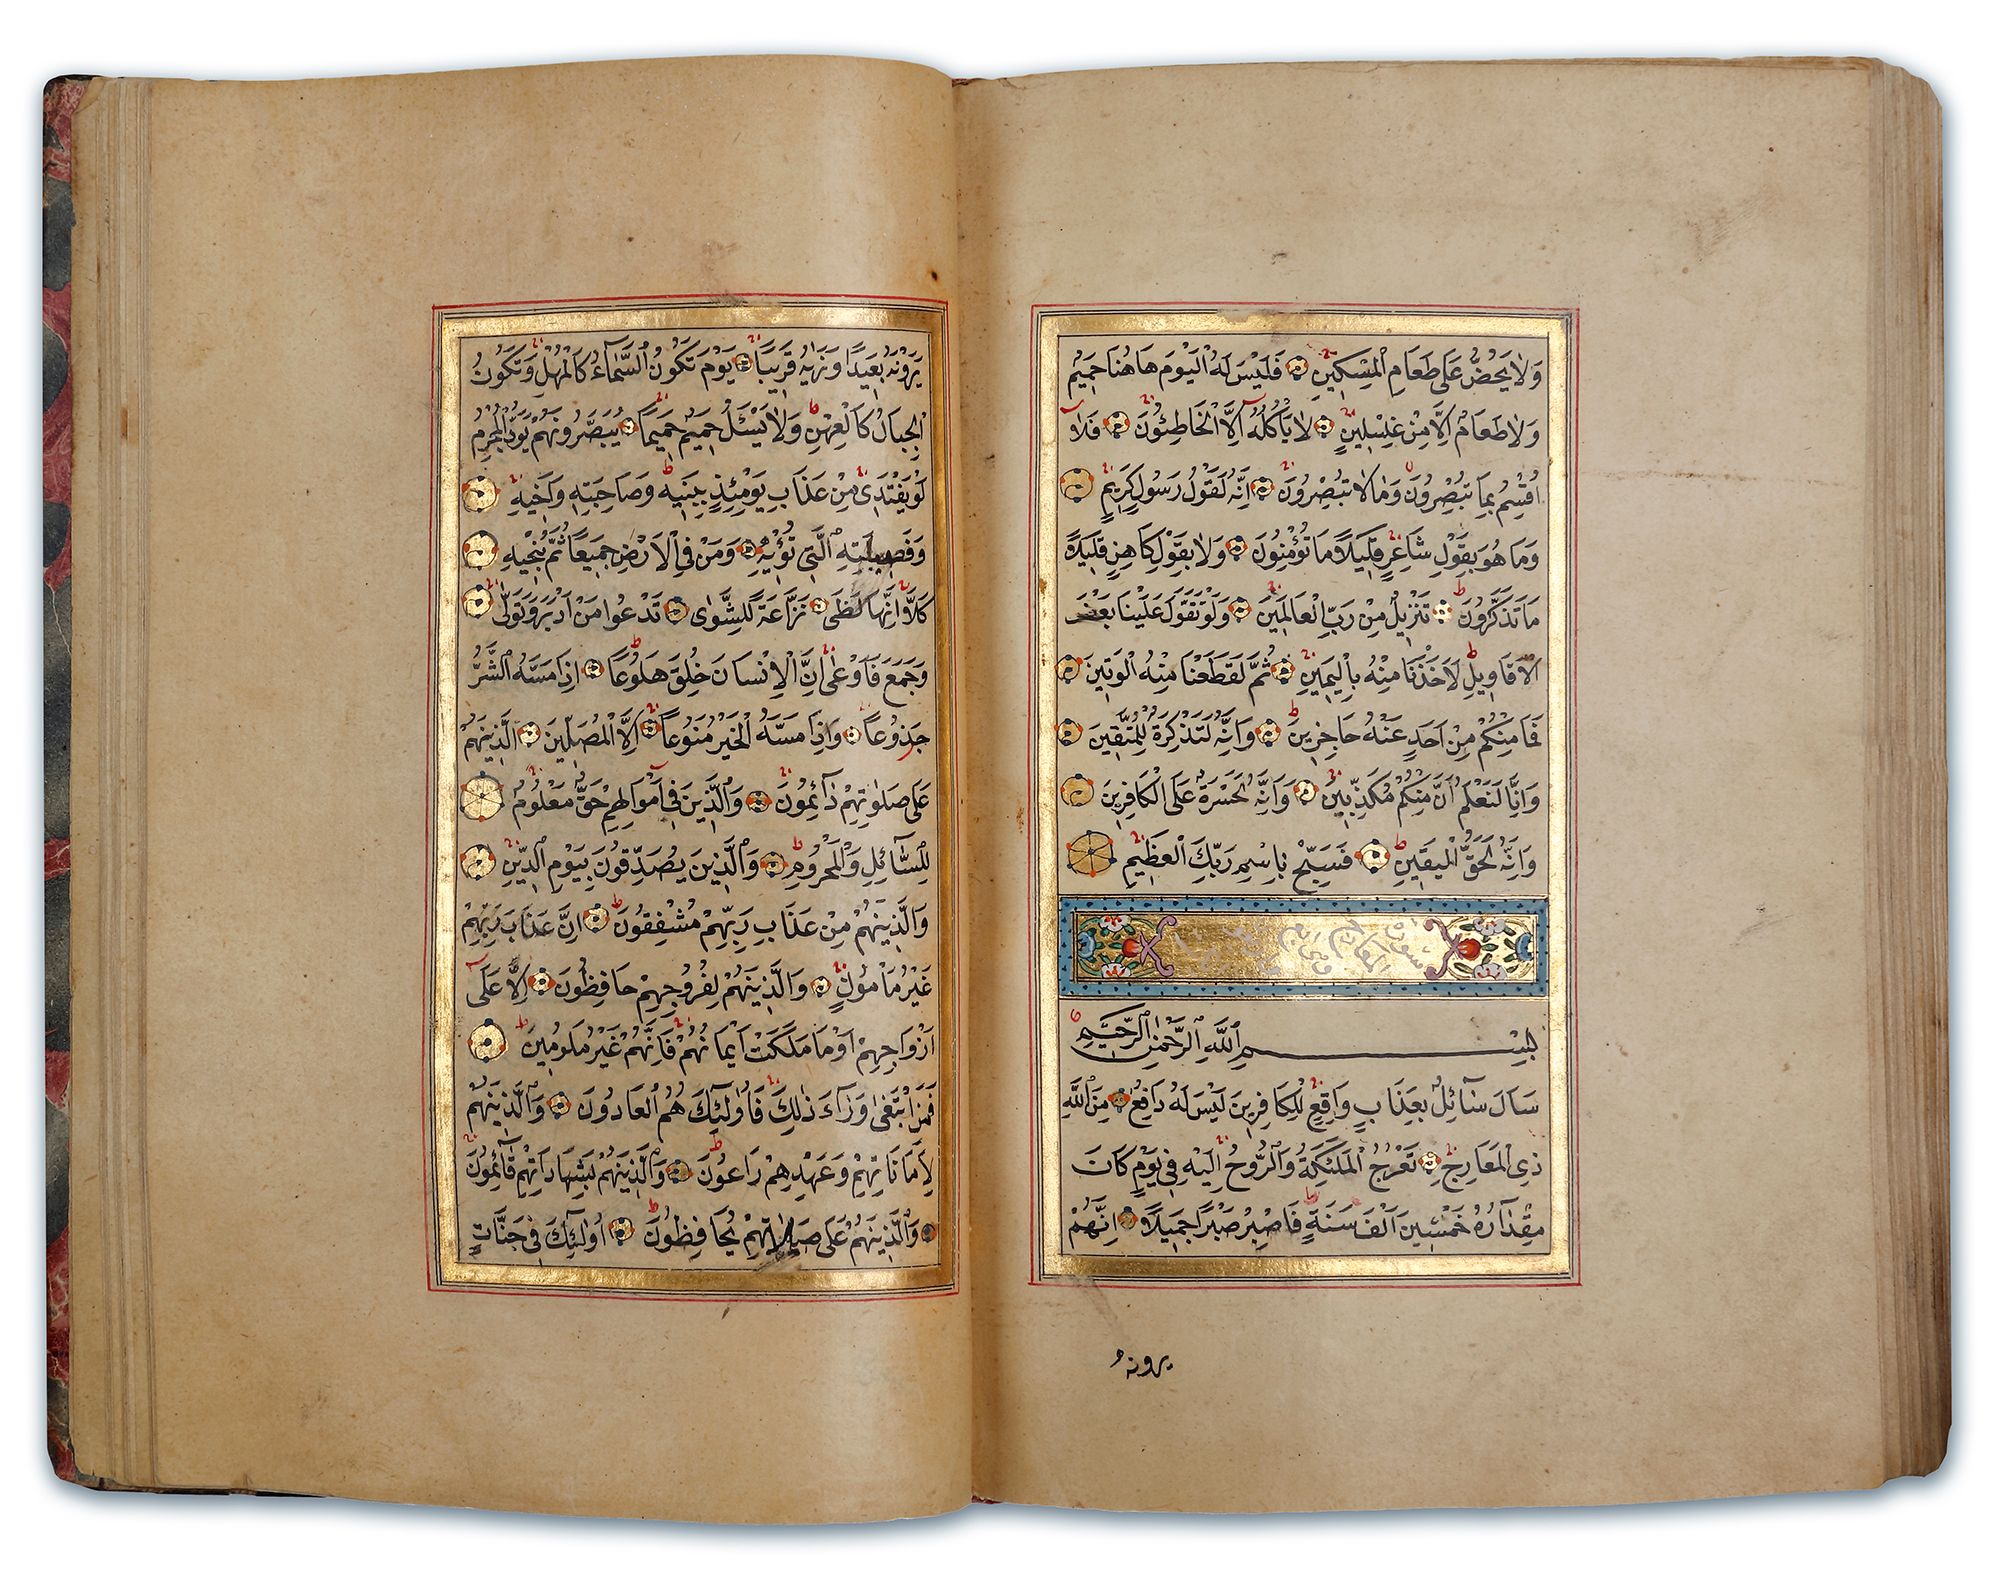 وَلَا يَحُضُّ عَلَى طَعَامِ الْمِسْكِينِ فَلَيْسَ لَهُ الْيَوْمَ هَاهُنَا حَمِيمٌ
وَلَا طَعَامٌ اِلَّا مِنْ غِسْلِينٍ لَا يَأْكُلُهُ اِلَّا الْخَاطِئُونَ فَلَا
اُقْسِمُ بِمَا تُبْصِرُونَ وَمَا لَا تُبْصِرُونَ اِنَّهُ لَقَوْلُ رَسُولٍ كَرِيمٍ
وَمَا هُوَ بِقَوْلِ شَاعِرٍ قَلِيلًا مَا تُؤْمِنُونَ وَلَا بِقَوْلِ كَاهِنٍ قَلِيلًا
مَا تَذَكَّرُونَ تَنْزِيلٌ مِنْ رَبِّ الْعَالَمِينَ وَلَوْ تَقَوَّلَ عَلَيْنَا بَعْضَ
الْاَقَاوِيلِ لَاَخَذْنَا مِنْهُ بِالْيَمِينِ ثُمَّ لَقَطَعْنَا مِنْهُ الْوَتِينَ
فَمَا مِنْكُمْ مِنْ اَحَدٍ عَنْهُ حَاجِزِينَ وَاِنَّهُ لَتَذْكِرَةٌ لِلْمُتَّقِينَ
وَاِنَّا لَنَعْلَمُ اَنَّ مِنْكُمْ مُكَذِّبِينَ وَاِنَّهُ لَحَسْرَةٌ عَلَى الْكَافِرِينَ
وَاِنَّهُ لَحَقُّ الْيَقِينِ فَسَبِّحْ بِاسْمِ رَبِّكَ الْعَظِيمِ
سورة المعارج
بِسْمِ اللّٰهِ الرَّحْمٰنِ الرَّحِيمِ
سَاَلَ سَآئِلٌ بِعَذَابٍ وَاقِعٍ لِلْكَافِرِينَ لَيْسَ لَهُ دَافِعٌ مِنَ اللّٰهِ
ذِي الْمَعَارِجِ تَعْرُجُ الْمَلٰئِكَةُ وَالرُّوحُ اِلَيْهِ فِي يَوْمٍ كَانَ
مِقْدَارُهُ خَمْسِينَ اَلْفَ سَنَةٍ فَاصْبِرْ صَبْرًا جَمِيلًا اِنَّهُمْ
يرونهُ
يَرَوْنَهُ بَعِيدًا وَنَرٰيهُ قَرِيبًا يَوْمَ تَكُونُ السَّمَآءُ كَالْمُهْلِ وَتَكُونُ
الْجِبَالُ كَالْعِهْنِ وَلَا يَسْئَلُ حَمِيمٌ حَمِيمًا يُبَصَّرُونَهُمْ يَوَدُّ الْمُجْرِمُ
لَوْ يَفْتَدِي مِنْ عَذَابِ يَوْمِئِذٍ بِبَنِيهِ وَصَاحِبَتِهِ وَاَخِيهِ
وَفَصِيلَتِهِ الَّتِي تُؤْيهِ وَمَنْ فِي الْاَرْضِ جَمِيعًا ثُمَّ يُنْجِيهِ
كَلَّا اِنَّهَا لَظٰى نَزَّاعَةً لِلشَّوٰى تَدْعُوا مَنْ اَدْبَرَ وَتَوَلّٰى
وَجَمَعَ فَاَوْعٰى اِنَّ الْاِنْسَانَ خُلِقَ هَلُوعًا اِذَا مَسَّهُ الشَّرُّ
جَزُوعًا وَاِذَا مَسَّهُ الْخَيْرُ مَنُوعًا اِلَّا الْمُصَلِّينَ الَّذِينَ هُمْ
عَلَى صَلٰوتِهِمْ دَآئِمُونَ وَالَّذِينَ فِي اَمْوَالِهِمْ حَقٌّ مَعْلُومٌ
لِلسَّآئِلِ وَالْمَحْرُومِ وَالَّذِينَ يُصَدِّقُونَ بِيَوْمِ الدِّينِ
وَالَّذِينَ هُمْ مِنْ عَذَابِ رَبِّهِمْ مُشْفِقُونَ اِنَّ عَذَابَ رَبِّهِمْ
غَيْرُ مَأْمُونٍ وَالَّذِينَ هُمْ لِفُرُوجِهِمْ حَافِظُونَ اِلَّا عَلَى
اَزْوَاجِهِمْ اَوْ مَا مَلَكَتْ اَيْمَانُهُمْ فَاِنَّهُمْ غَيْرُ مَلُومِينَ
فَمَنِ ابْتَغٰى وَرَآءَ ذٰلِكَ فَاُولٰئِكَ هُمُ الْعَادُونَ وَالَّذِينَ هُمْ
لِاَمَانَاتِهِمْ وَعَهْدِهِمْ رَاعُونَ وَالَّذِينَ هُمْ بِشَهَادَاتِهِمْ قَآئِمُونَ
وَالَّذِينَ هُمْ عَلَى صَلَاتِهِمْ يُحَافِظُونَ اُولٰئِكَ فِي جَنَّاتٍ